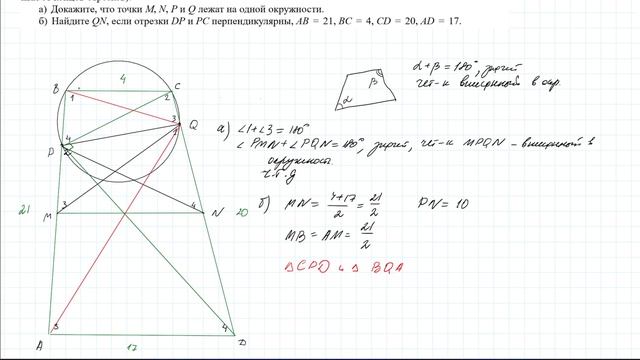 а) Докажите, что точки M, N, P и Q лежат на одной окружности.
б) Найдите QN, если отрезки DP и PC перпендикулярны, AB = 21, BC = 4, CD = 20, AD = 17.
B 4 C
1 2
3 Q
4
P
21 M 3 4 N 20
A 3 4 D
17
β
α
α+β = 180°, значит
чет-к вписанный в окр.
а) ∠1+∠3 = 180°
∠PMN+∠PQN=180°, значит, чет-к MPQN – вписанный в
окружность.
ч.т.д
б) MN = 4+17/2 = 21/2 DN = 10
MB = AM = 21/2
△CPD и △BQA